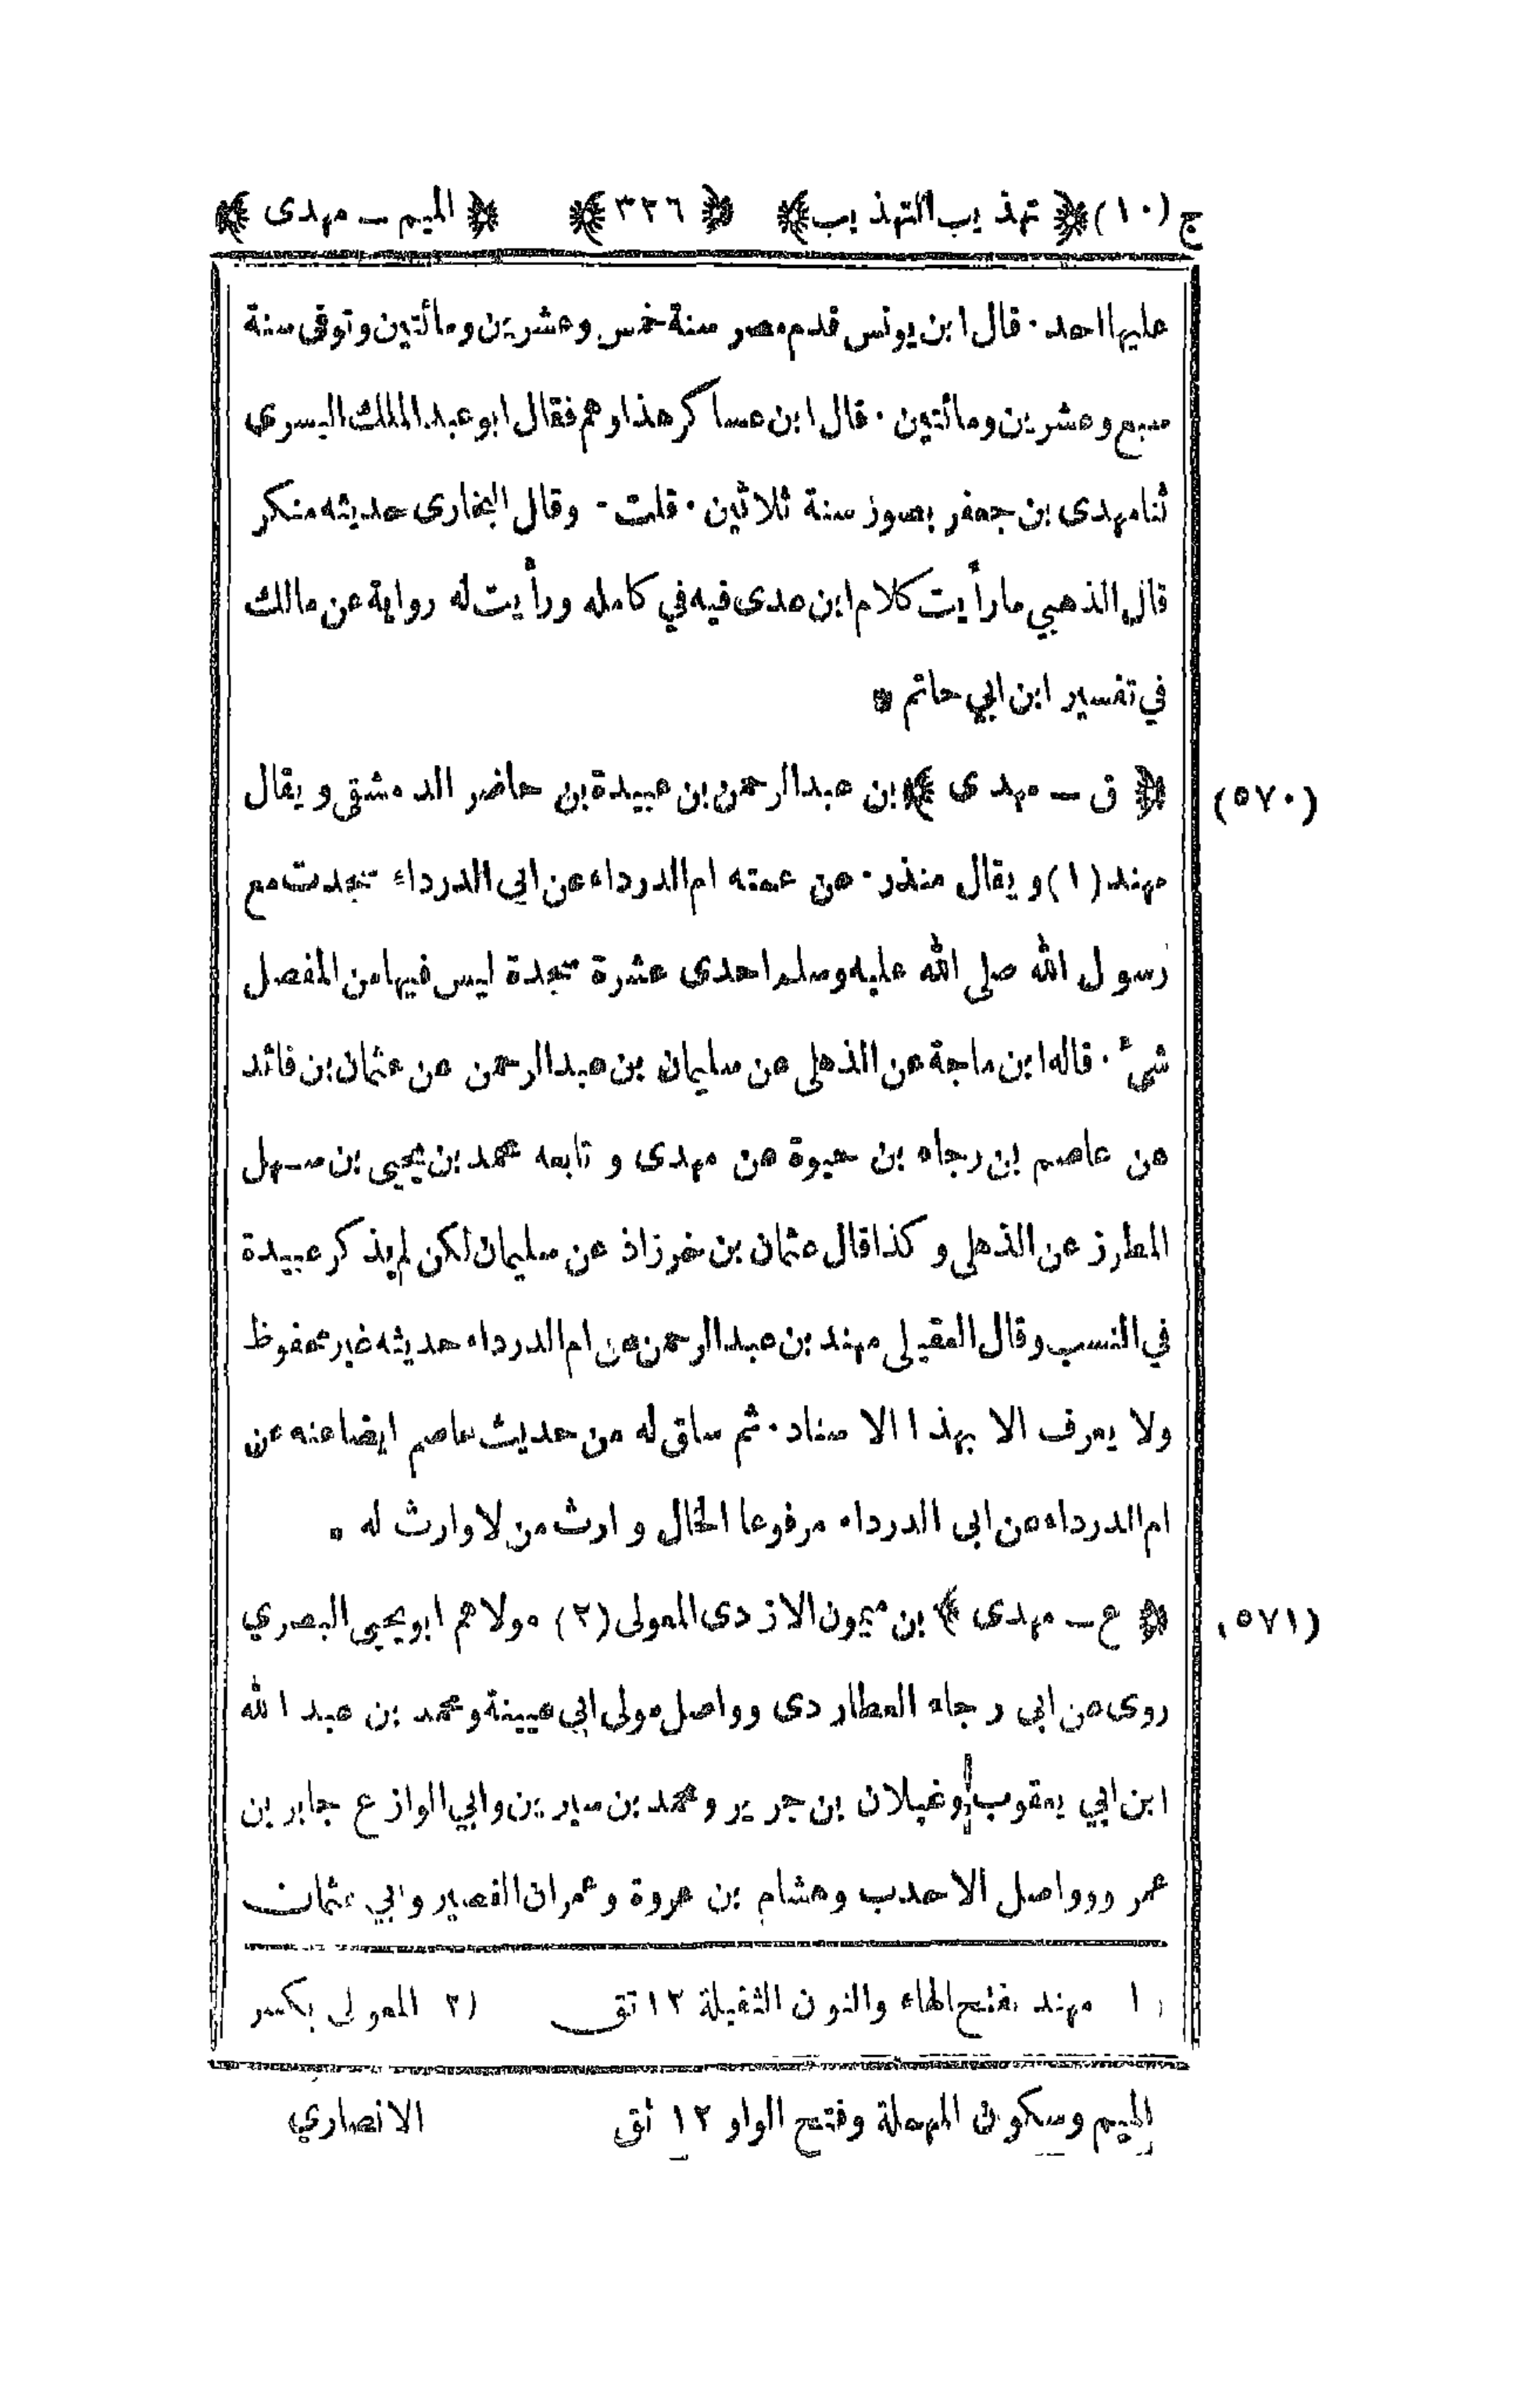 ج (١٠) ﴿ تهذيب التهذيب ﴾ ﴿ ٣٢٦ ﴾ ﴿ الميم ـ مهدى ﴾
عليها احد · قال ابن يونس قدم مصر سنة خمس وعشرين ومائتين وتوفى سنة
سبع وعشرين ومائتين · قال ابن عساكر هذا وهم فقال ابو عبد الملك اليسري
ثنا مهدى بن جعفر بصور سنة ثلاثين · قلت - وقال البخارى حديثه منكر
قال الذهبي ما رأيت كلام ابن عدى فيه في كامله ورأيت له رواية عن مالك
في تفسير ابن ابي حاتم *
(٥٧٠) ﴿ ق ـ مهدى ﴾ بن عبد الرحمن بن عبيدة بن حاضر الدمشقى ويقال
مهند (١) ويقال منذر · عن عمته ام الدرداء عن ابي الدرداء سجدت مع
رسول الله صلى الله عليه وسلم احدى عشرة سجدة ليس فيها من المفصل
شئ · قاله ابن ماجة عن الذهلى عن سليمان بن عبد الرحمن عن عثمان بن فائد
عن عاصم بن رجاء بن حيوة عن مهدى و تابعه محمد بن يحيى بن سهل
المطرز عن الذهلى وكذا قال عثمان بن خرزاذ عن سليمان لكن لم يذكر عبيدة
في النسب وقال العقيلى مهند بن عبد الرحمن عن ام الدرداء حديثه غير محفوظ
ولا يعرف الا بهذا الاسناد · ثم ساق له من حديث عاصم ايضا عنه عن
ام الدرداء عن ابى الدرداء مرفوعا الخال وارث من لا وارث له *
(٥٧١) ﴿ ع ـ مهدى ﴾ بن ميمون الازدى المعولى (٢) مولاهم ابو يحيى البصري
روى عن ابى رجاء العطاردى وواصل مولى ابي عيينة ومحمد بن عبد الله
ابن ابي يعقوب وغيلان بن جرير ومحمد بن سيرين وابي الوازع جابر بن
عمرو وواصل الاحدب وهشام بن عروة وعمران القصير وابي عثمان
(١ مهند بفتح الهاء والنون الثقيلة ١٢ تق (٢ المعولى بكسر
الميم وسكون المهملة وفتح الواو ١٢ تق الانصاري